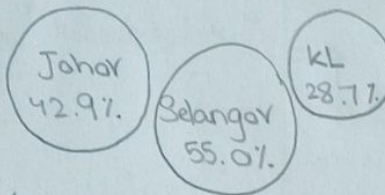 Johor
42.9%
Selangor
55.0%
KL
28.7%